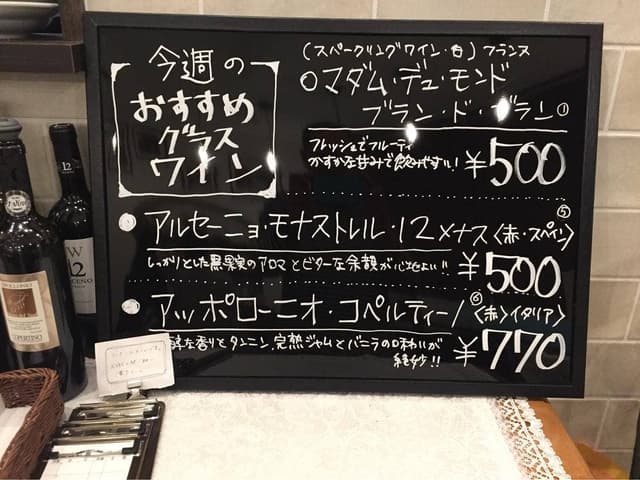 今週の
おすすめ
グラス
ワイン
(スパークリングワイン・白) フランス
○マダム・デュ・モンド
ブラン・ド・ブラン①
フレッシュでフルーティ
かすかな甘みで飲みやすい! ¥500
アルセーニョ・モナストレル・12メナス〈赤・スペイン〉⑤
しっかりとした黒果実のアロマとビターな余韻が心地よい!! ¥500
アッポローニオ・コペルティーノ〈赤〉イタリア〉⑥
な香りとタンニン、完熟ジャムとバニラの味わいが
絶妙!! ¥770
12
W
12